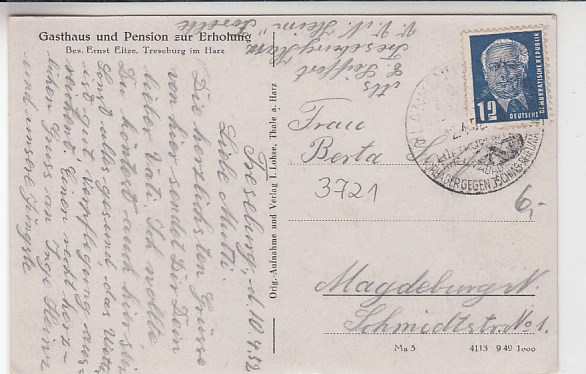 Gasthaus und Pension zur Erholung
Bes. Ernst Eitze, Treseburg im Harz
Treseburg, d. 10.4.52
Liebe Mutti.
Die herzlichsten Grüsse
von hier sendet Dir Dein
lieber Vati. Ich wollte
Du könntest auch hier sein
Sind alles gesund, das Wetter
ist gut, Verpflegung aus-
reichend. Einen recht herz-
lichen Gruss an Inge Heinz
und unsere Jüngste
Abs
E. Seiffert
Treseburg Harz
V.V.N. Heim "
Orig.-Aufnahme und Verlag T. Lohse, Thale a. Harz
DEUTSCHE DEMOKRATISCHE REPUBLIK
12
Frau
Berta
3721
6,-
Magdeburg N.
Schmidtstr. No 1.
Ma 5 4113 9 49 1000